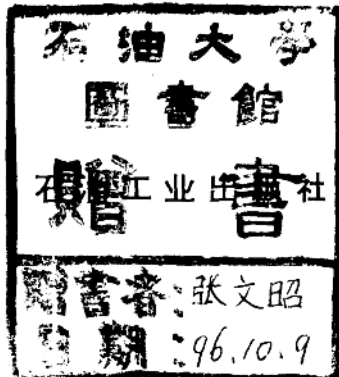 石油大学
圖書館
贈書
石油工业出版社
贈書者：张文昭
日期：96.10.9